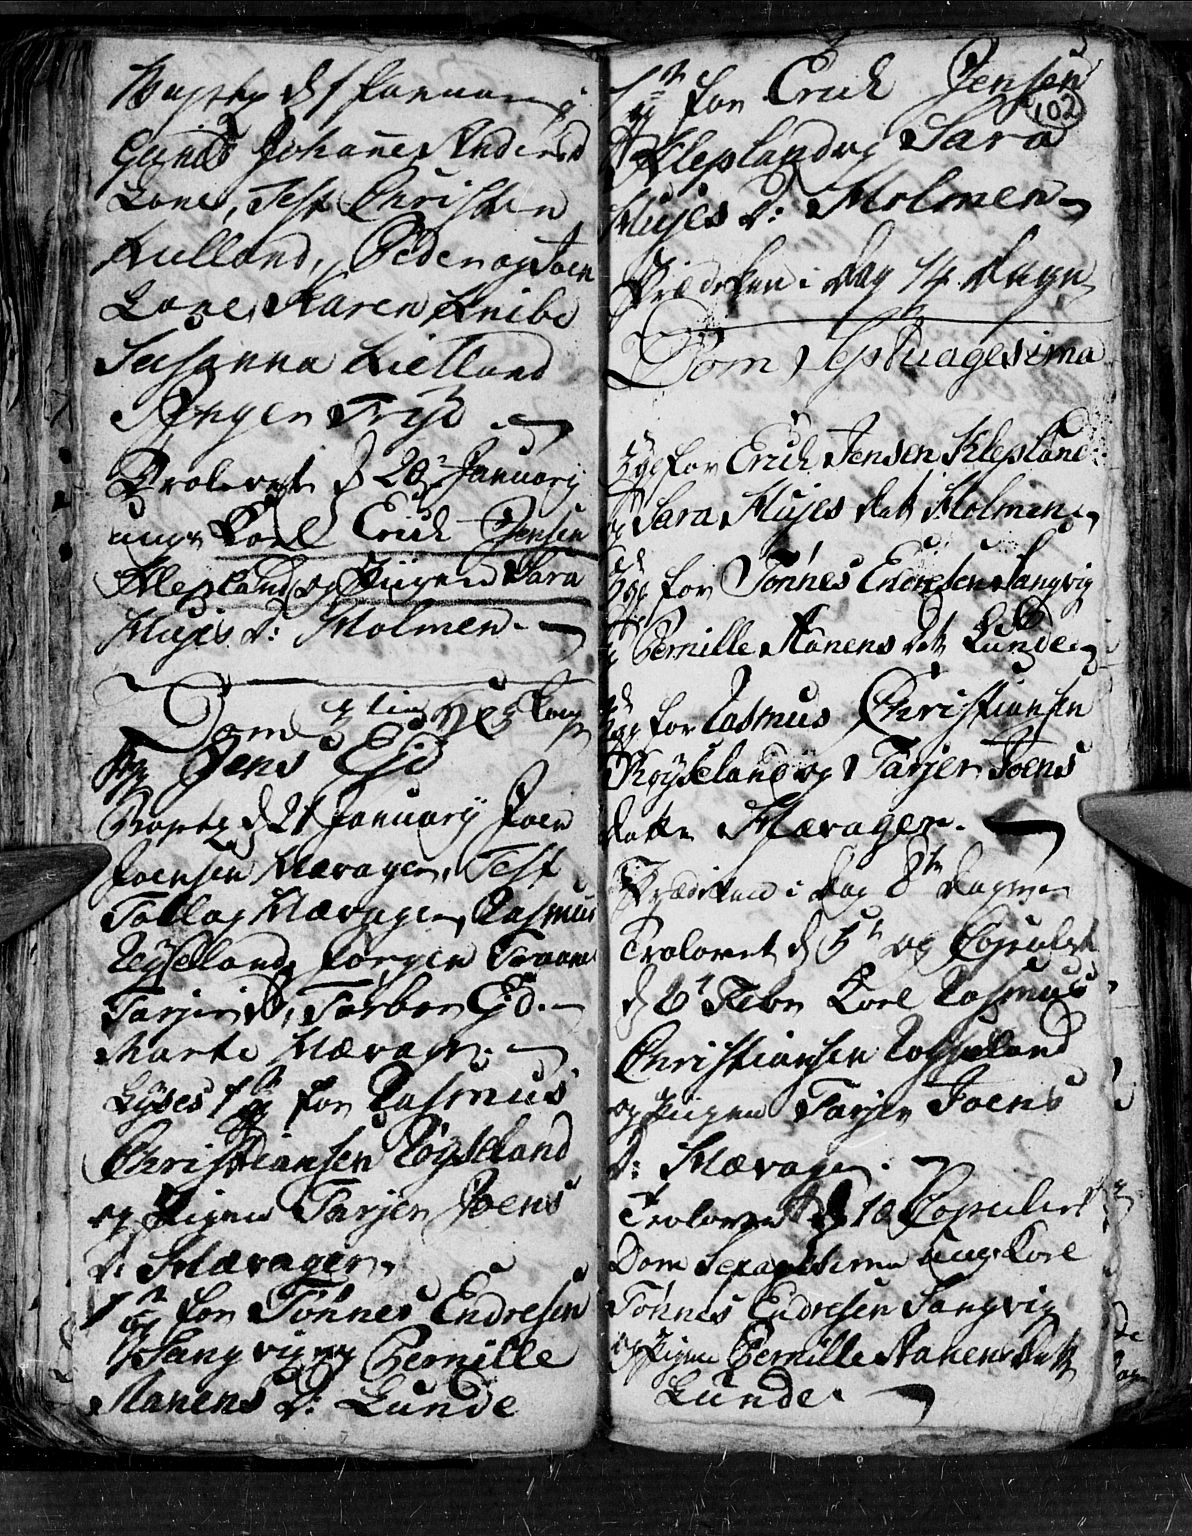 Bapt: d 1 January
Johanne Anders D
Lone, Test Christen
Lulland, Peder og Joen
Lone, Karen Knibe
Susanna Lielland
Inger Friis
Trolovet d 20 January
unge Karl Erich Jensen
Klepland og Piigen Sara
Mujes D: Holmen.
Dom
Jens Eid
Bapt: d 21 January Joen
Joensen Hævager, Test
Tollag Hævager, Rasmus
Røyseland, Jørgen
Tarjer, Torbor Eid.
Marte Hævager.
Lyses 1 g for Rasmus
Christiansen Røyseland
og Pigen Tarjer Joens
D: Hævager,
1 g for Tønnes Endresen
Sangvig og Pernille
Hanens D: Lunde
102
1 g for Erich Jensen
Klepland og Sara
Mujes D: Holmen
Prædiken i dag 14 dage
Dom Septuagesima
g for Erich Jensen Klepland
og Sara Mujes dat Holmen
g for Tønnes Endresen Sangvig
og Pernille Hanens dat Lunde
g for Rasmus Christiansen
Røyseland og Tarjer Joens
datter Hævager.
Prædiken i dag 8te dagen
Trolovet d 5t og Copulert
d 6t Febr Karl Rasmus
Christiansen Røyseland
og Pigen Tarjer Joens
D: Hævager.
Trolovet d 10 Copulert
Dom Sexagesima unge Karl
Tønnes Endresen Sangvig
og Pigen Pernille Hanens datt
Lunde.